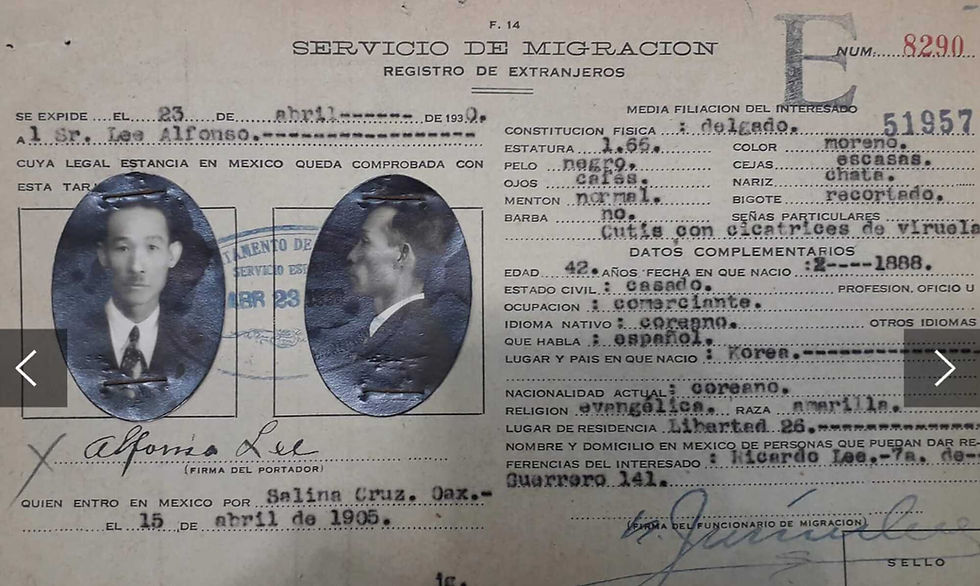 F. 14
SERVICIO DE MIGRACION
REGISTRO DE EXTRANJEROS
E
NUM. 8290
SE EXPIDE EL 23 de abril------ DE 1930.
A l Sr. Lee Alfonso.-----------------
CUYA LEGAL ESTANCIA EN MEXICO QUEDA COMPROBADA CON
ESTA TARJ
TAMENTO DE
SERVICIO
ABR 23
Alfonso Lee
(FIRMA DEL PORTADOR)
QUIEN ENTRO EN MEXICO POR Salina Cruz. Oax.-
EL 15 DE abril de 1905.
MEDIA FILIACION DEL INTERESADO
51957
CONSTITUCION FISICA : delgado.
ESTATURA 1.66. COLOR moreno.
PELO negro. CEJAS escasas.
OJOS cafes. NARIZ chata.
MENTON normal. BIGOTE recortado.
BARBA no. SEÑAS PARTICULARES
Cutis con cicatrices de viruela
DATOS COMPLEMENTARIOS
EDAD 42. AÑOS FECHA EN QUE NACIO :2----1888.
ESTADO CIVIL : casado. PROFESION, OFICIO U
OCUPACION : comerciante.
IDIOMA NATIVO : coreano. OTROS IDIOMAS
QUE HABLA : español.
LUGAR Y PAIS EN QUE NACIO : Korea.----------------
NACIONALIDAD ACTUAL : coreano.
RELIGION evangélica. RAZA amarilla.
LUGAR DE RESIDENCIA Libertad 26.---------------
NOMBRE Y DOMICILIO EN MEXICO DE PERSONAS QUE PUEDAN DAR RE-
FERENCIAS DEL INTERESADO : Ricardo Lee.-7a. de-
Guerrero 141.
(FIRMA DEL FUNCIONARIO DE MIGRACION)
SELLO
ig.